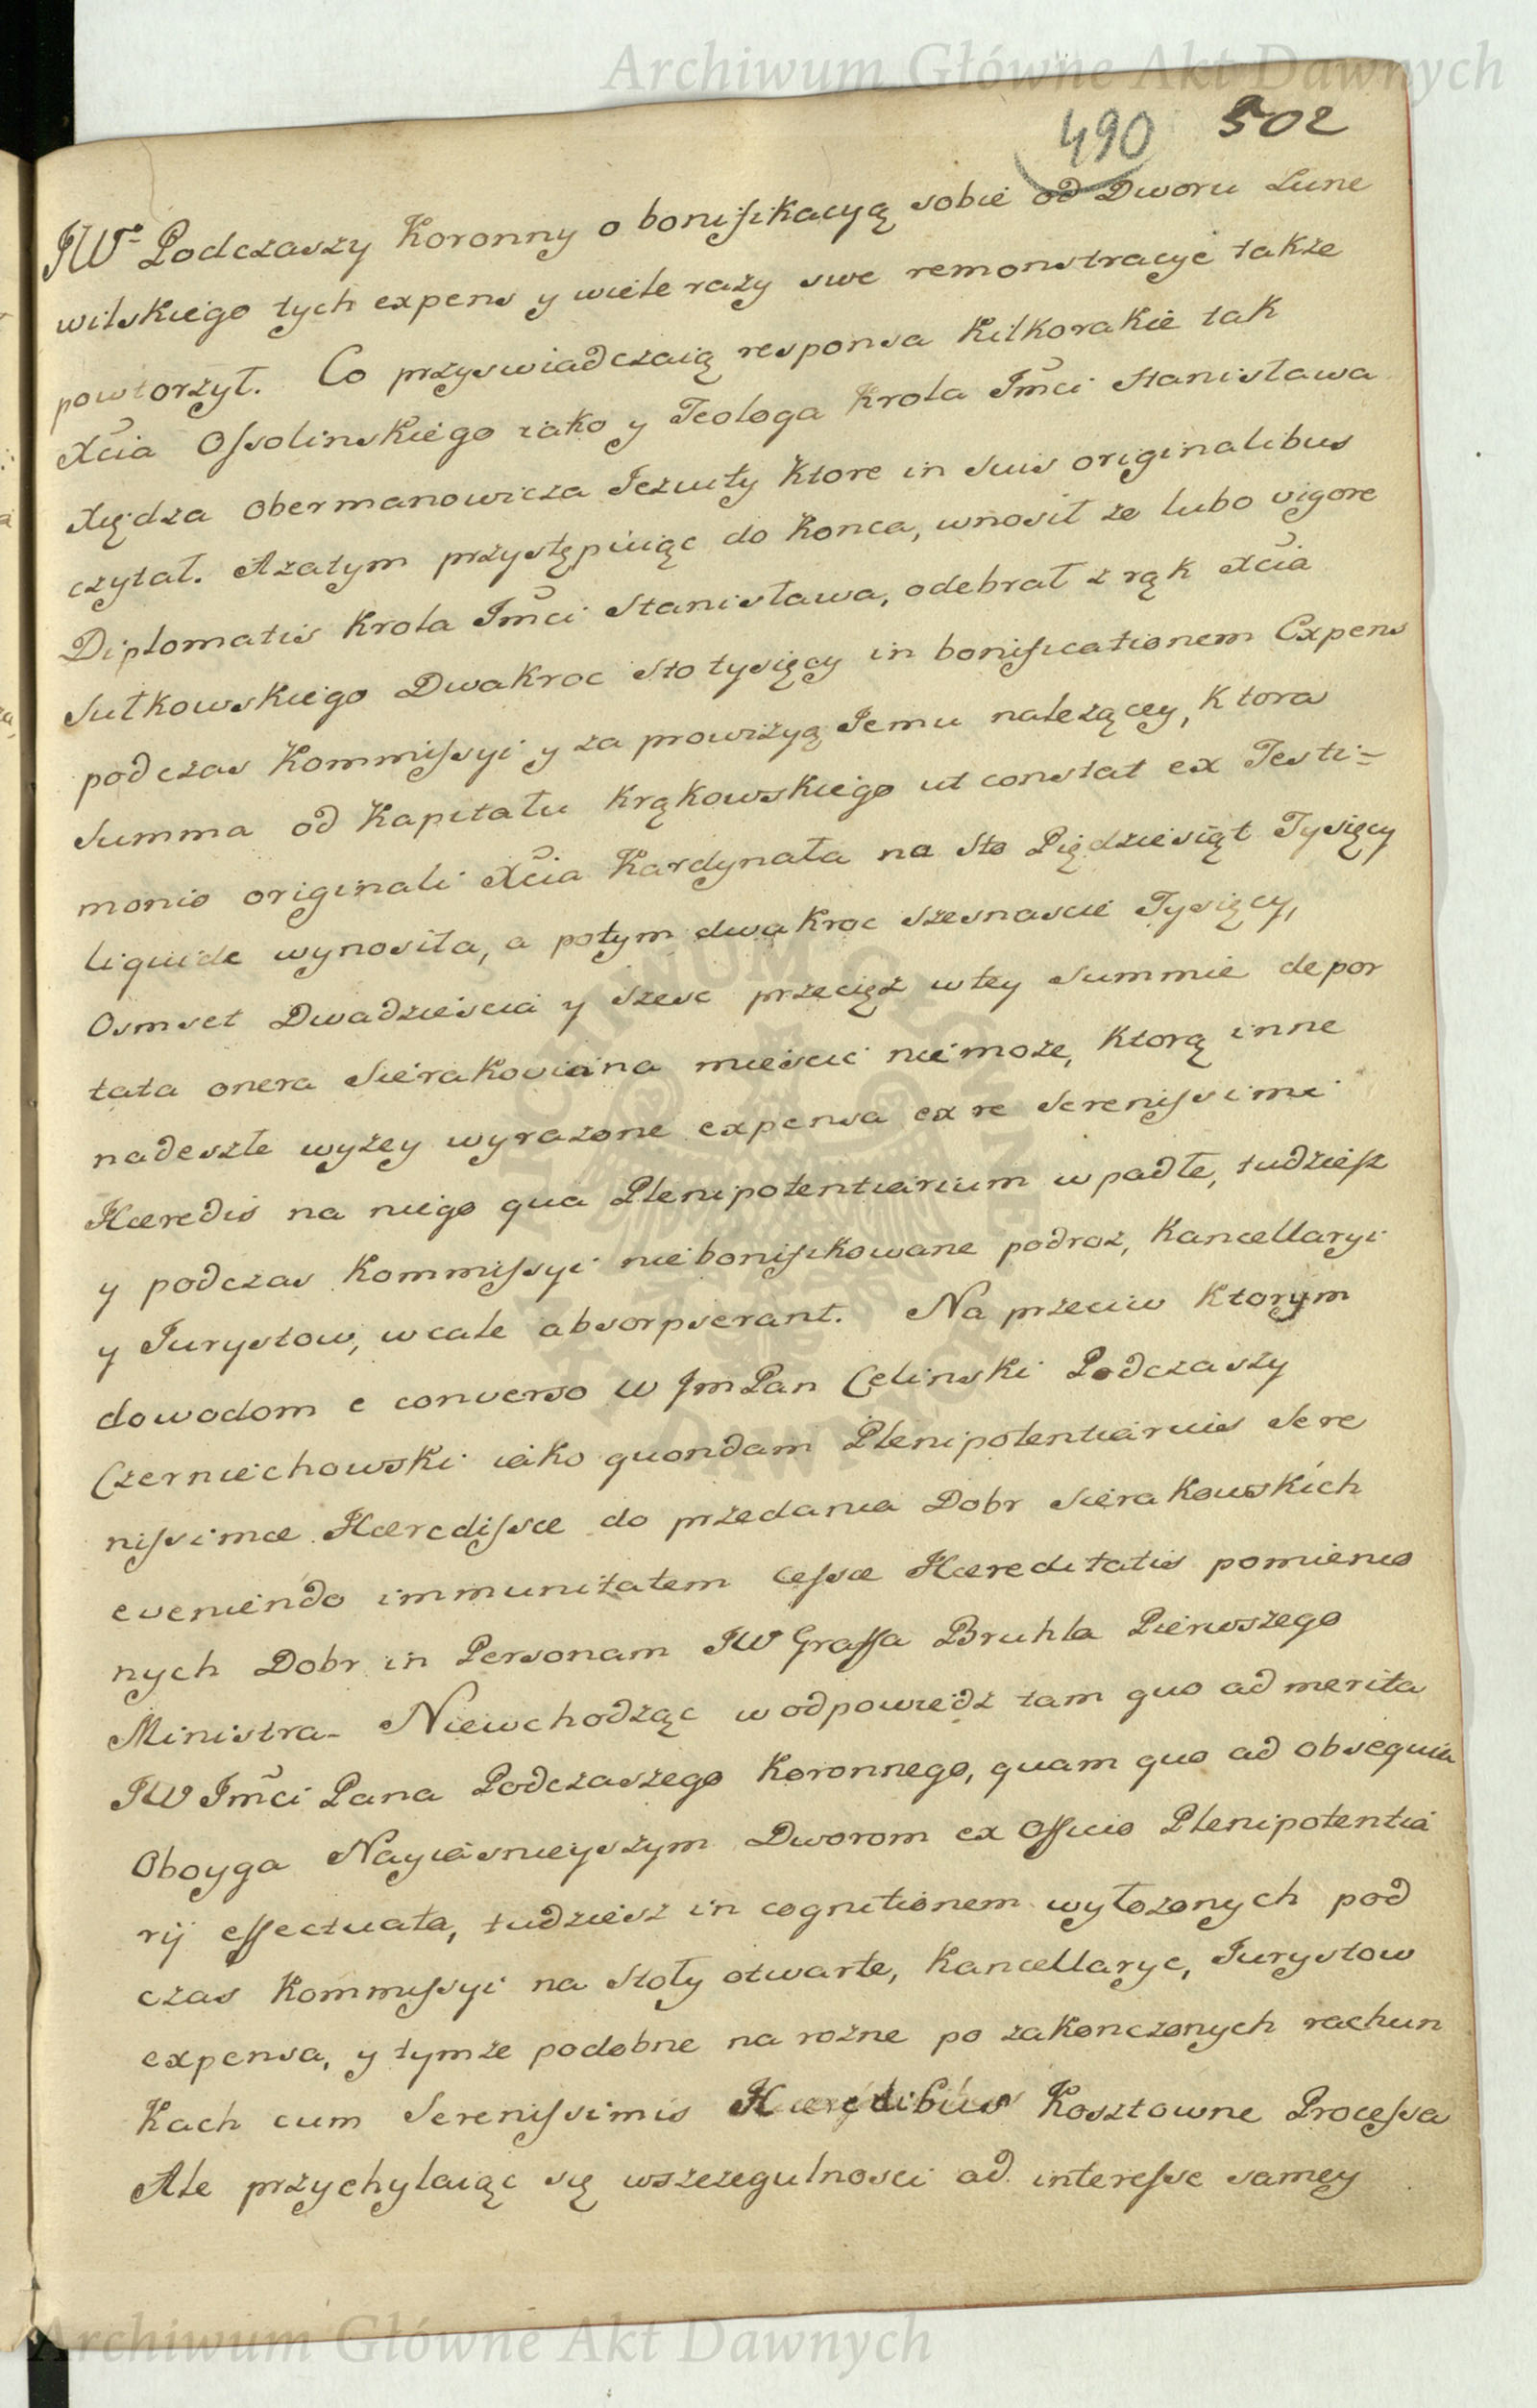 Archiwum Główne Akt Dawnych
490 502
JWo Podczaszy Koronny o bonifikacyą sobie od Dworu Lune
wilskiego tych expens y wiele razy swe remonstracye takze
powtorzył. Co przyswiadczaią responsa kilkorakie tak
Xcia Ossolinskiego iako y Teologa Krola Jmci Stanisława
Xiędza Obermanowicza Jezuity ktore in suis originalibus
czytał. Azatym przystępuiąc do konca, wnosił ze lubo vigore
Diplomatis Krola Jmci Stanisława, odebrał z rąk Xcia
Sułkowskiego Dwakroc sto tysięcy in bonificationem Expens
podczas Kommissyi y za prowizyą Jemu nalezącey, ktora
Summa od Kapitału Krąkowskiego ut constat ex Testi=
monio originali Xcia Kardynała na Sto Piędziesiąt Tysięcy
liquide wynosiła, a potym dwakroc szesnascie Tysięcy,
Osmset Dwadziescia y szesc przecięz wtey Summie depor
tata onera Sierakoviana miescic niemoze, ktorą inne
nadeszłe wyzey wyrazone expensa ex re Serenissimi
Hæredis na niego qua Plenipotentiarium wpadłe, tudziesz
y podczas Kommissyi niebonifikowane podroz, Kancellaryi
y Jurystow, wcale absorpserant. Na przeciw ktorym
dowodom e converso W JmPan Celinski Podczaszy
Czerniechowski iako quondam Plenipotentiarius Sere
nissimæ Hæredissæ do przedania Dobr Sierakowskich
eveniendo immunitatem cessæ Hæreditatis pomienio
nych Dobr in Personam JW Graffa Bruhla Pierwszego
Ministra_ Niewchodząc w odpowiedz tam quo ad merita
JW Jmci Pana Podczaszego Koronnego, quam quo ad obsequia
Oboyga Nayiasnieyszym Dworom ex Officio Plenipotentia
rij effectuata, tudziesz in cognitionem wyłozonych pod
czas Kommissyi na Stoły otwarte, Kancellarye, Jurystow
expensa, y tymze podobne na rozne po zakonczonych rachun
kach cum Serenissimis Hæredibus kosztowne Processa
Ale przychylaiąc się wszczegulnosci ad interesse samey
Archiwum Główne Akt Dawnych